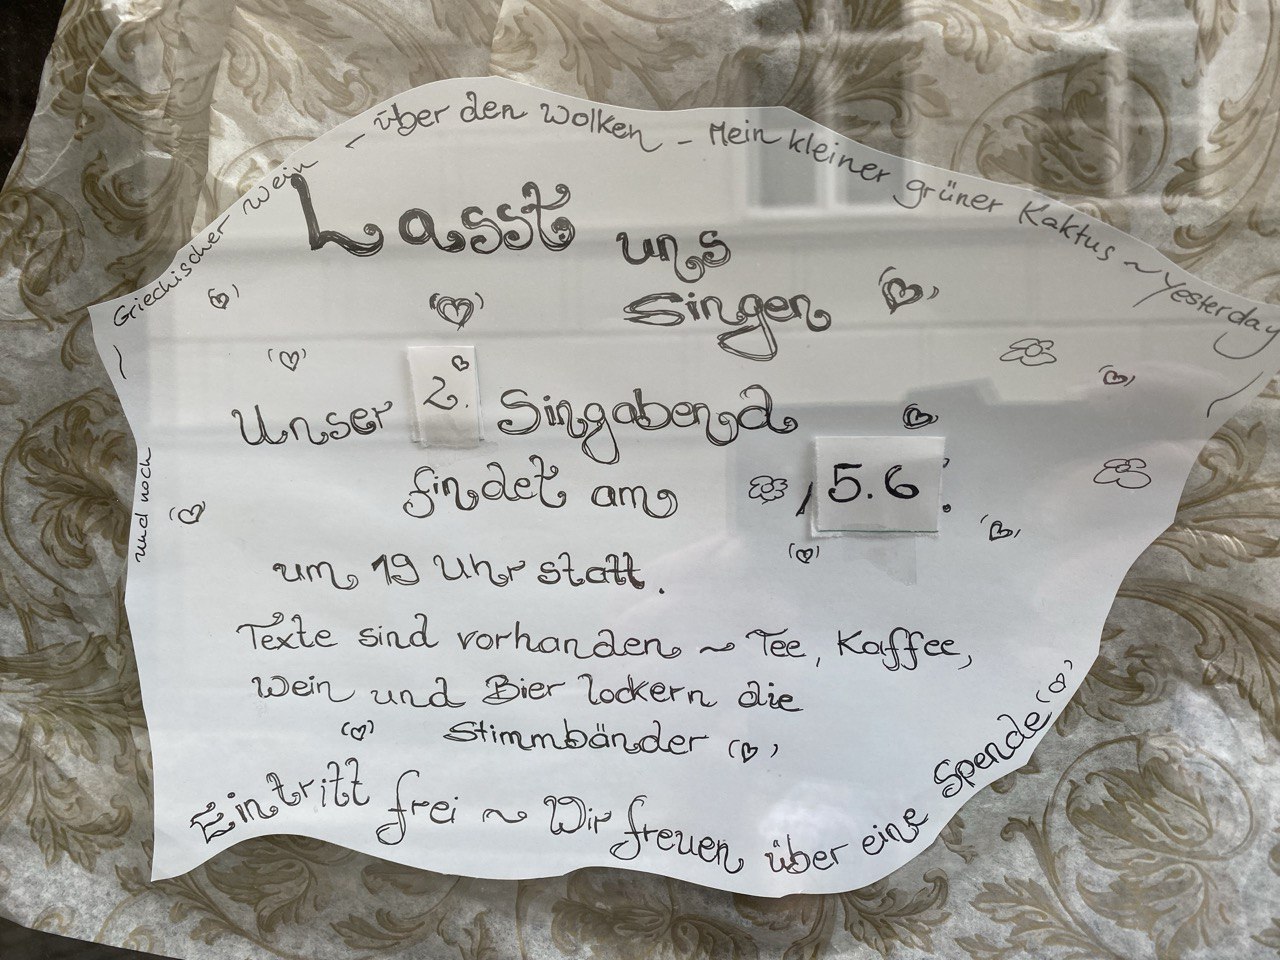 und noch
Griechischer Wein – über den Wolken – Mein kleiner grüner Kaktus ~ Yesterday
Lasst uns
Singen
Unser 2. Singabend
findet am 5.6.
um 19 Uhr statt.
Texte sind vorhanden ~ Tee, Kaffee,
Wein und Bier lockern die
Stimmbänder
Eintritt frei ~ Wir freuen über eine Spende